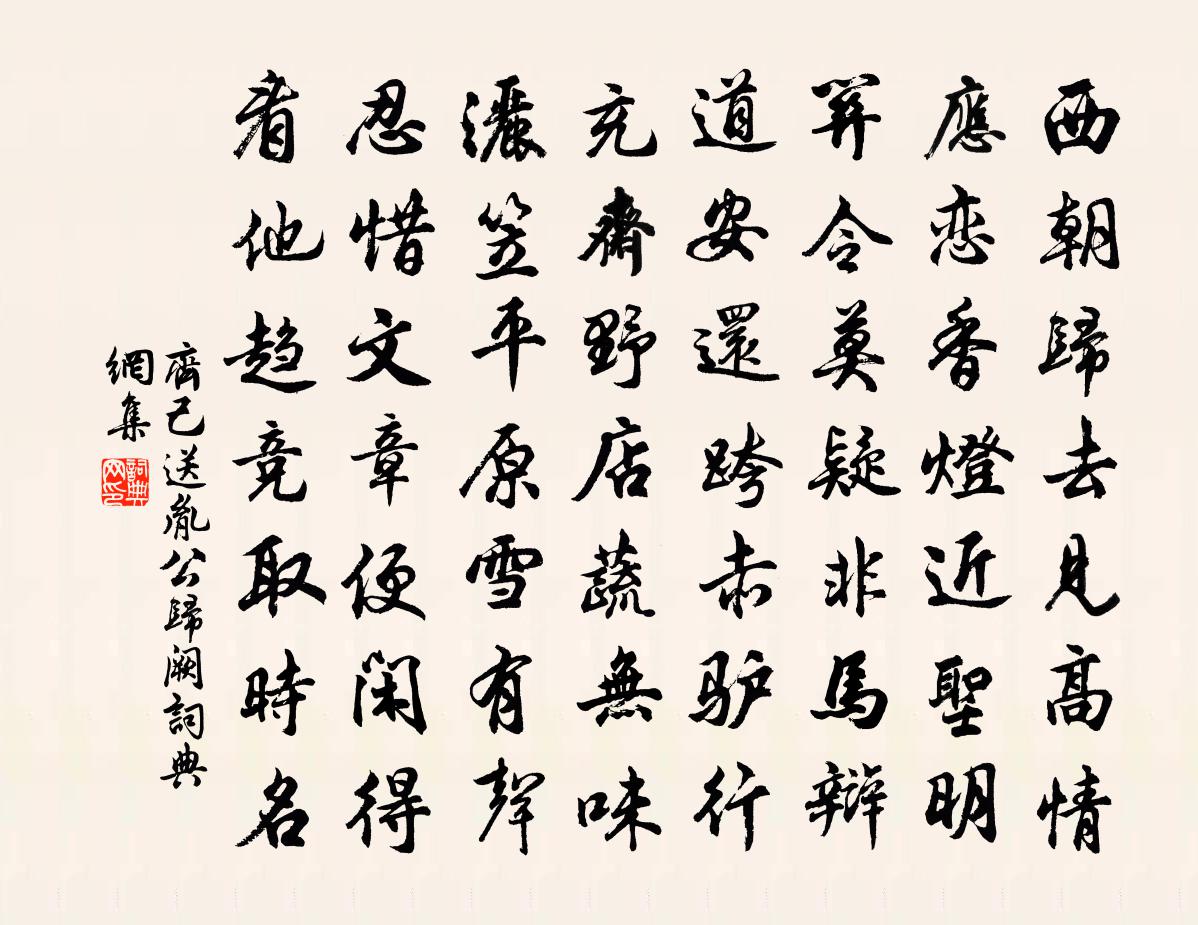 西朝歸去見高情
應恋香燈近聖明
关令莫疑非馬辯
道安還跨赤驴行
充齋野店蔬無味
灑笠平原雪有聲
忍惜文章便闲得
看他趋竞取時名
齊己送胤公歸阙詞典
網集
詞典
网印